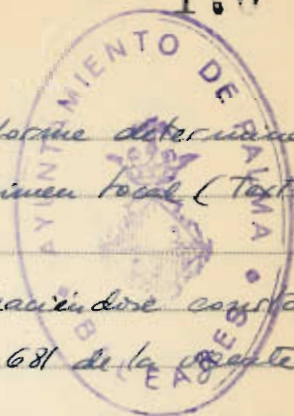 AYUNTAMIENTO DE PALMA
BALEARES
forme determina
imen local (Text
haciéndose consta
681 de la vigente